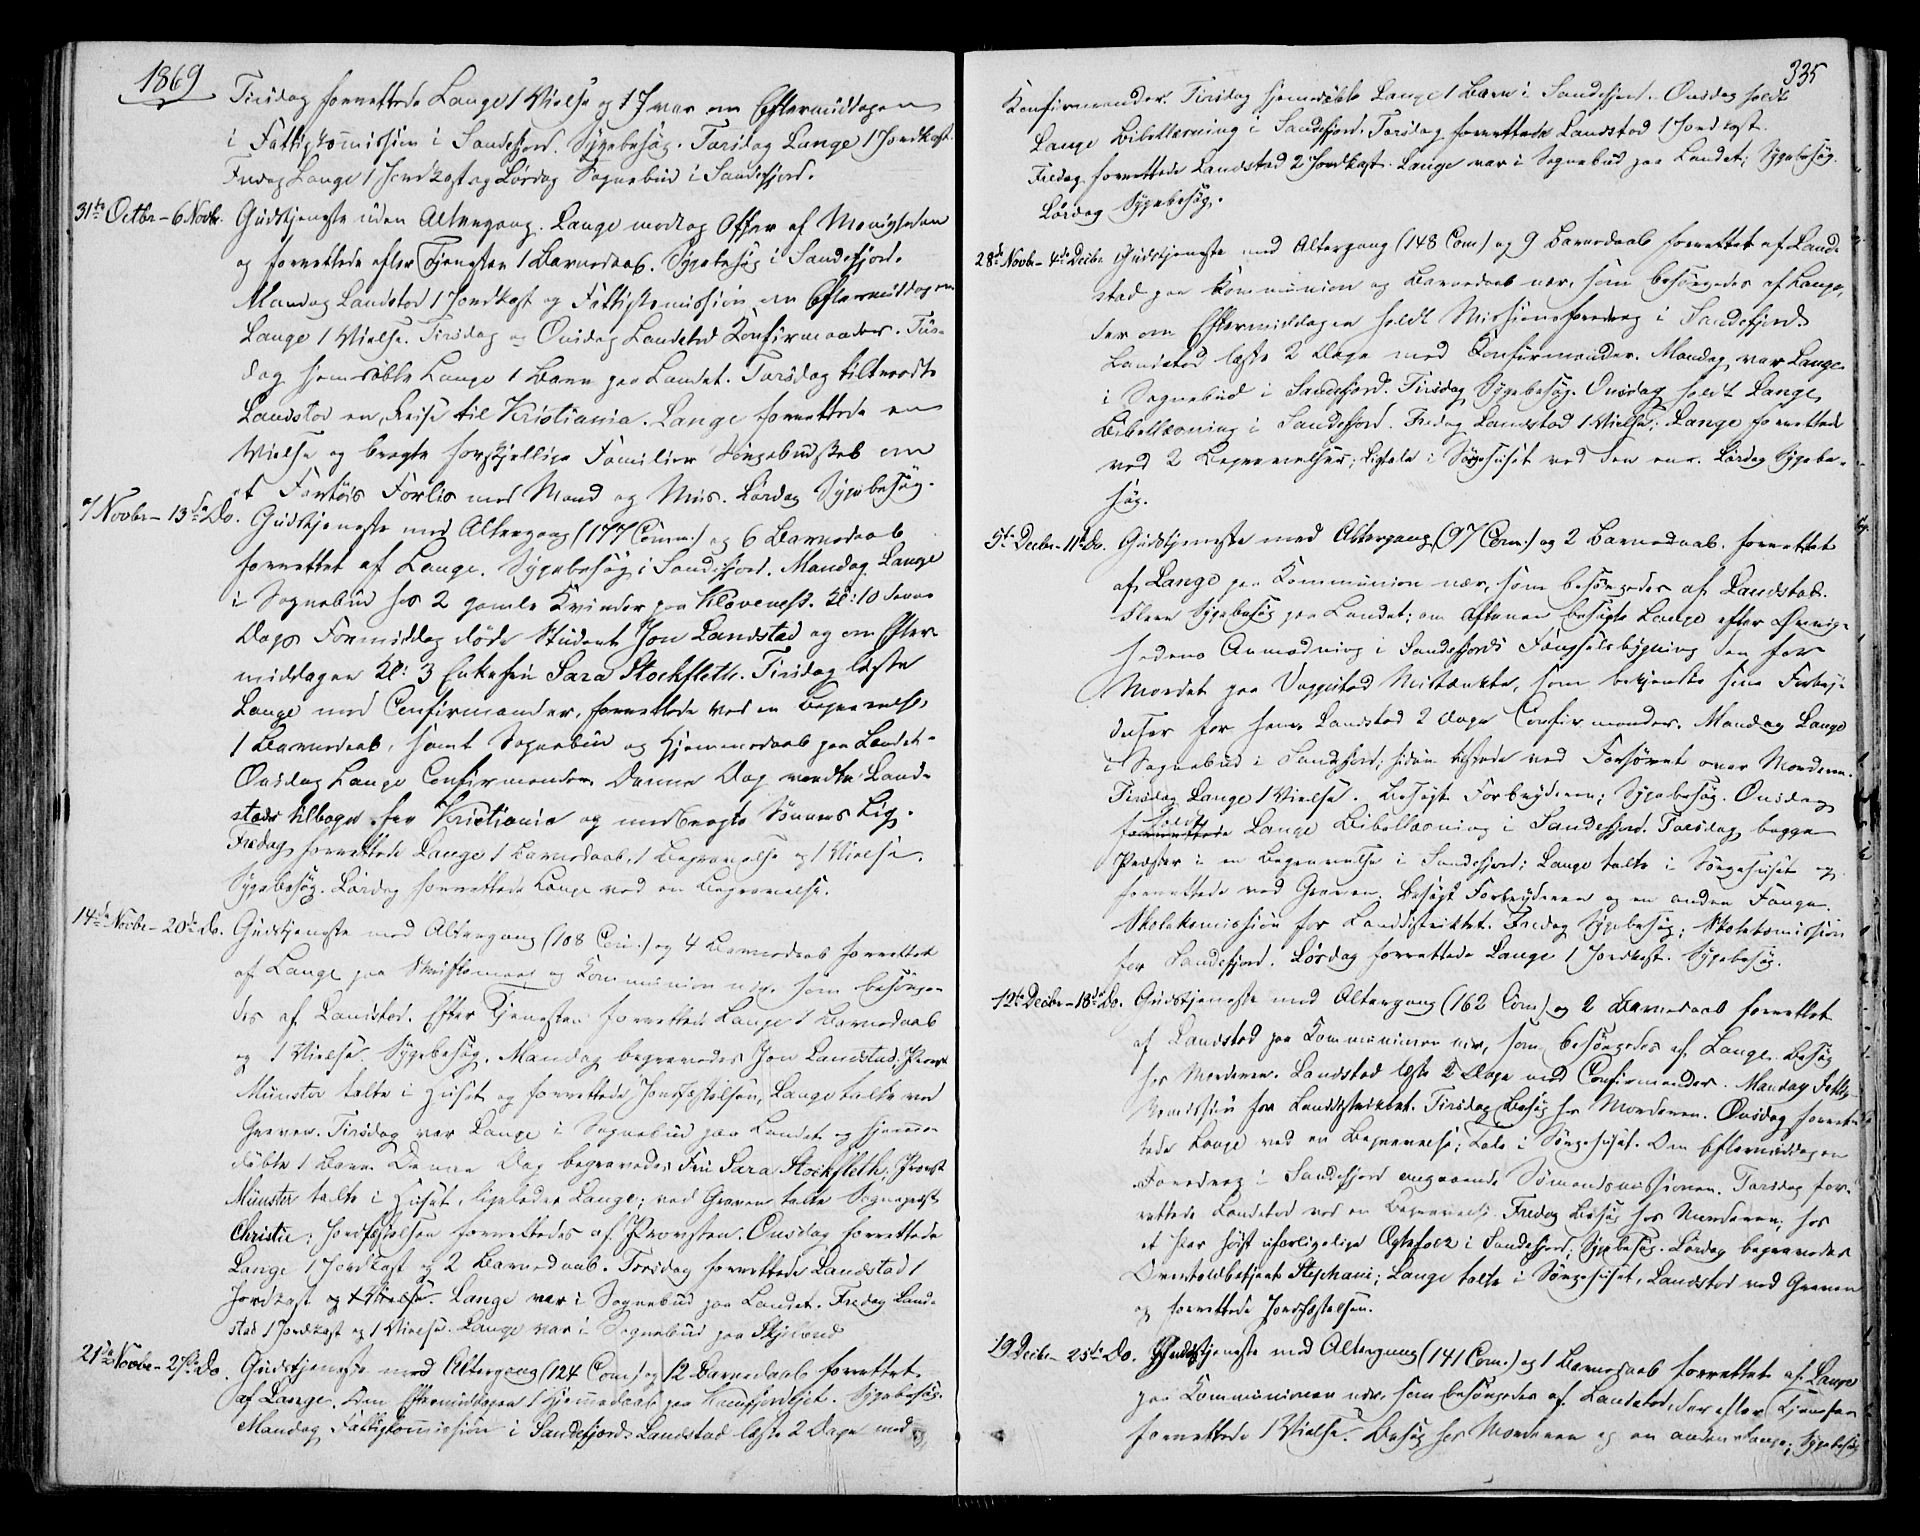 1869
Tirsdag forrettede Lange 1 Vielse og 1 J var om Eftermiddagen
i Fattigkommission i Sandefjord. Sygebesøg. Torsdag Lange 1 Jordkast.
Fredag Lange 1 Jordkast og Lørdag Sognebud i Sandefjord.
31te Octbr - 6 Novbr. Gudstjeneste uden Altergang. Lange modtog Offer af Menigheden
og forrettede efter Tjenesten 1 Barnedaab. Sygebesøg i Sandefjord.
Mandag Landstad 1 Jordkast og Fattigkomission om Eftermiddagen
Lange 1 Vielse. Tirsdag og Onsdag Landstad Konfirmander. Tirs-
dag hjemdøbte Lange 1 Barn paa Landet. Torsdag tiltraadte
Landstad en Reise til Kristiania. Lange forrettede en
Vielse og bragte forskjellige Familier Sørgebudskab om
et Fartøis Forlis med Mand og Mus. Lørdag Sygebesøg.
7 Novbr - 13de Do. Gudstjeneste med Altergang (177 Comm.) og 6 Barnedaab
forrettet af Lange. Sygebesøg i Sandefjord. Mandag Lange
i Sognebud hos 2 gamle Kvinder paa Klavenes. Kl: 10 denne
Dags Formiddag døde Student Jon Landstad og om Efter-
middagen Kl: 3 Enkefru Sara Stockfleth. Tirsdag læste
Lange med Confirmander, forrettede ved en Begravelse,
1 Barnedaab, samt Sognebud og Hjemmedaab paa Landet.
Onsdag Lange Confirmander. Denne Dag vendte Land-
stads tilbage fra Kristiania og medbragte Sønnens Lig.
Fredag forrettede Lange 1 Barnedaab, 1 Begravelse og 1 Vielse.
Sygebesøg. Lørdag forrettede Lange ved en Begravelse.
14de Novbr - 20de Do. Gudstjeneste med Altergang (108 Com.) og 4 Barnedaab forrettet
af Lange paa Skriftemaal og Kommunion nær som besørge-
des af Landstad. Efter Tjenesten forrettede Lange 1 Barnedaab
og 1 Vielse. Sygebesøg. Mandag begravedes Jon Landstad. Provst
Münster talte i Huset og forrettede Jordfæstelsen, Lange talte ved
Graven. Tirsdag var Lange i Sognebud paa Landet og hjemme-
døbte 1 Barn. Denne Dag begravedes Fru Sara Stockfleth. Provst
Münster talte i Huset, ligeledes Lange; ved Graven talte Sognepræst
Christie; Jordfæstelsen forrettedes af Provsten. Onsdag forrettede
Lange 1 Jordkast og 2 Barnedaab. Torsdag forrettede Landstad 1
Jordkast og 1 Vielse. Lange var i Sognebud paa Landet. Fredag Land-
stad 1 Jordkast og 1 Vielse. Lange var i Sognebud paa
21de Novbr - 27de Do. Gudstjeneste med Altergang (124 Com.) og 12 Barnedaab forrettet
af Lange. Om Eftermiddagen 1 Hjemmedaab paa. Sygebesøg.
Mandag Fattigkomission i Sandefjord. Landstad læste 2 Dage med
335
Konfirmander. Tirsdag hjemdøbte Lange 1 Barn i Sandefjord. Onsdag holdt
Lange Bibellæsning i Sandefjord. Torsdag forrettede Landstad 1 Jordkast.
Fredag forrettede Landstad 2 Jordkast. Lange var i Sognebud paa Landet; Sygebesøg.
Lørdag Sygebesøg.
28de Novbr - 4de Decbr. Gudstjeneste med Altergang (148 Com) og 9 Barnedaab forrettet af Land-
stad paa Kommunion og Barnedaab nær, som besørgedes af Lange,
der om Eftermiddagen holdt Missionsforedrag i Sandefjord.
Landstad læste 2 Dage med Confirmander. Mandag var Lange
i Sognebud i Sandefjord. Tirsdag Sygebesøg. Onsdag holdt Lange
Bibellæsning i Sandefjord. Fredag Landstad 1 Vielse; Lange forrettede
ved 2 Begravelser; Ligtale i Sørgehuset ved den ene. Lørdag Sygebe-
søg.
5te Decbr - 11te Do. Gudstjeneste med Altergang (97 Com.) og 2 Barnedaab forrettet
af Lange paa Kommunion nær, som besørgedes af Landstad.
Flere Sygebesøg paa Landet; om Aftenen besøgte Lange efter Øvrig-
hedens Anmodning i Sandefjords Fængselsbygning den for
Mordet paa Mistænkte, som bekjendte sine Forbry-
delser for ham. Landstad 2 Dage Confirmander. Mandag Lange
i Sognebud i Sandefjord; siden tilstede ved Forhøret over Morderen.
Tirsdag Lange 1 Vielse. Besøgt Forbryderen; Sygebesøg. Onsdag
holdt
forrettede Lange Bibellæsning i Sandefjord. Torsdag begge
Præster i en Begravelse i Sandefjord; Lange talte i Sørgehuset og
forrettede ved Graven. Besøgt Forbryderen og en anden Fange.
Skolekomission for Landdistriktet. Fredag Sygebesøg; Skolekomission
for Sandefjord. Lørdag forrettede Lange 1 Jordkast. Sygebesøg.
12te Decbr - 18de Do. Gudstjeneste med Altergang (162 Com) og 2 Barnedaab forrettet
af Landstad paa Kommunion nær, som besørgedes af Lange. Besøg
hos Morderen. Landstad læste 2 Dage med Confirmander. Mandag Fattig-
komission for Landdistriktet. Tirsdag Besøg hos Morderen. Onsdag forret-
tede Lange ved en Begravelse; Tale i Sørgehuset. Om Eftermiddagen
Foredrag i Sandefjord angaaende Sømandsmissionen. Torsdag for-
rettede Landstad ved en Begravelse. Fredag Besøg hos Morderen, hos
et Par høist uforligelige Ægtefolk i Sandefjord; Sygebesøg. Lørdag begravedes
Overtoldbetjent Stephani; Lange talte i Sørgehuset, Landstad ved Graven
og forrettede Jordfæstelsen.
19 Decbr - 25de Do. Gudstjeneste med Altergang (141 Com.) og 1 Barnedaab forrettet af Lange
paa Kommunion nær, som besørgedes af Landstad, der efter Tjenesten
forrettede 1 Vielse. Besøg hos Morderen og en anden Fange; Sygebesøg